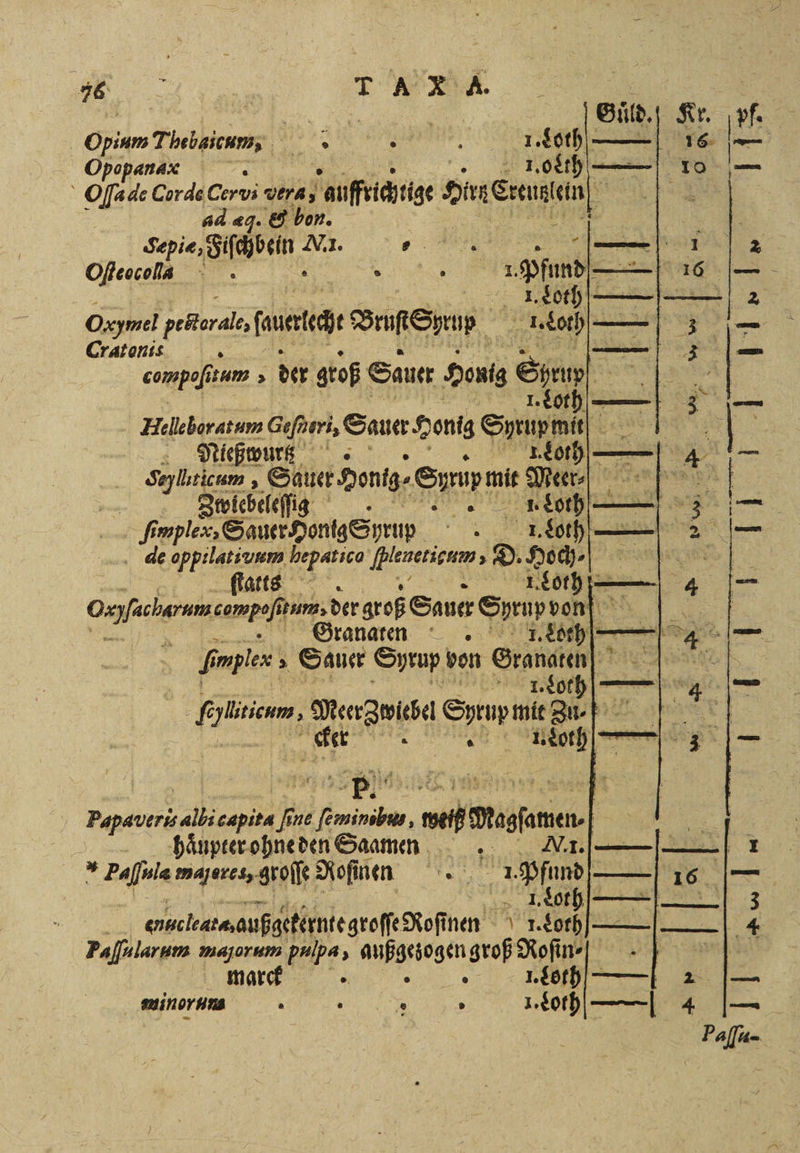 76 TAXA.
Güld. Kr. pf.
Opium Thebaicum, . . . 1.Loth —— 16 —
Opopanax . . . . 1.Loth —— 10 —
Ossa de Corde Cervi vera, auffrichtige Hirtz Creutzlein
ad æq. & bon.
Sepiæ, Fischbein N.1. . . . —— 1 2
Osteocolla . . . . 1.Pfund —— 16 —
1.Loth —— —— 2
Oxymel pectorale, sauerlecht Brust Syrup 1.Loth —— 3 —
Cratonis . . . . . . —— 3 —
compositum, der groß Sauer Honig Syrup
1.Loth —— 3 —
Helleboratum Gesneri, Sauer Honig Syrup mit
Nießwurtz . . . 1.Loth —— 4 —
Scylliticum, Sauer Honig-Syrup mit Meer-
Zwiebelessig . . . 1.Loth —— 3 —
simplex, Sauer Honig Syrup . 1.Loth —— 2 —
de oppilativum hepatico spleneticum, D. Hoch-
statts . . . 1.Loth —— 4 —
Oxysacharum compositum, der groß Sauer Syrup von
Granaten . 1.Loth —— 4 —
simplex, Sauer Syrup von Granaten
1.Loth —— 4 —
scylliticum, MeerZwiebel Syrup mit Zu-
cker . . 1.Loth —— 3 —
P.
Papaveris albi capita sine seminibus, weiß Magsamen-
häupter ohne den Saamen . N.1. —— —— 1
* Passula majores, grosse Rosinen . 1.Pfund —— 16 —
1.Loth —— —— 3
enucleata, außgekernte grosse Rosinen 1.Loth —— —— 4
Passularum majorum pulpa, außgezogen groß Rosin-
marck . . . 1.Loth —— 2 —
minorum . . . . 1.Loth —— 4 —
Passu-